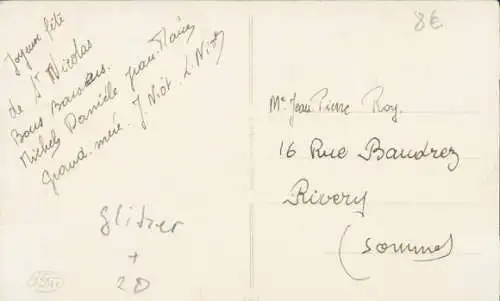 Joyeuse fête
de St Nicolas
Bons Baisers.
Michel Danièle Jean-Marie
Grand-mère. J. Niót L. Niót
8€
Mr Jean Pierre Roy.
16 Rue Baudrez
Rivery
(Somme)
Glitzer
+
20